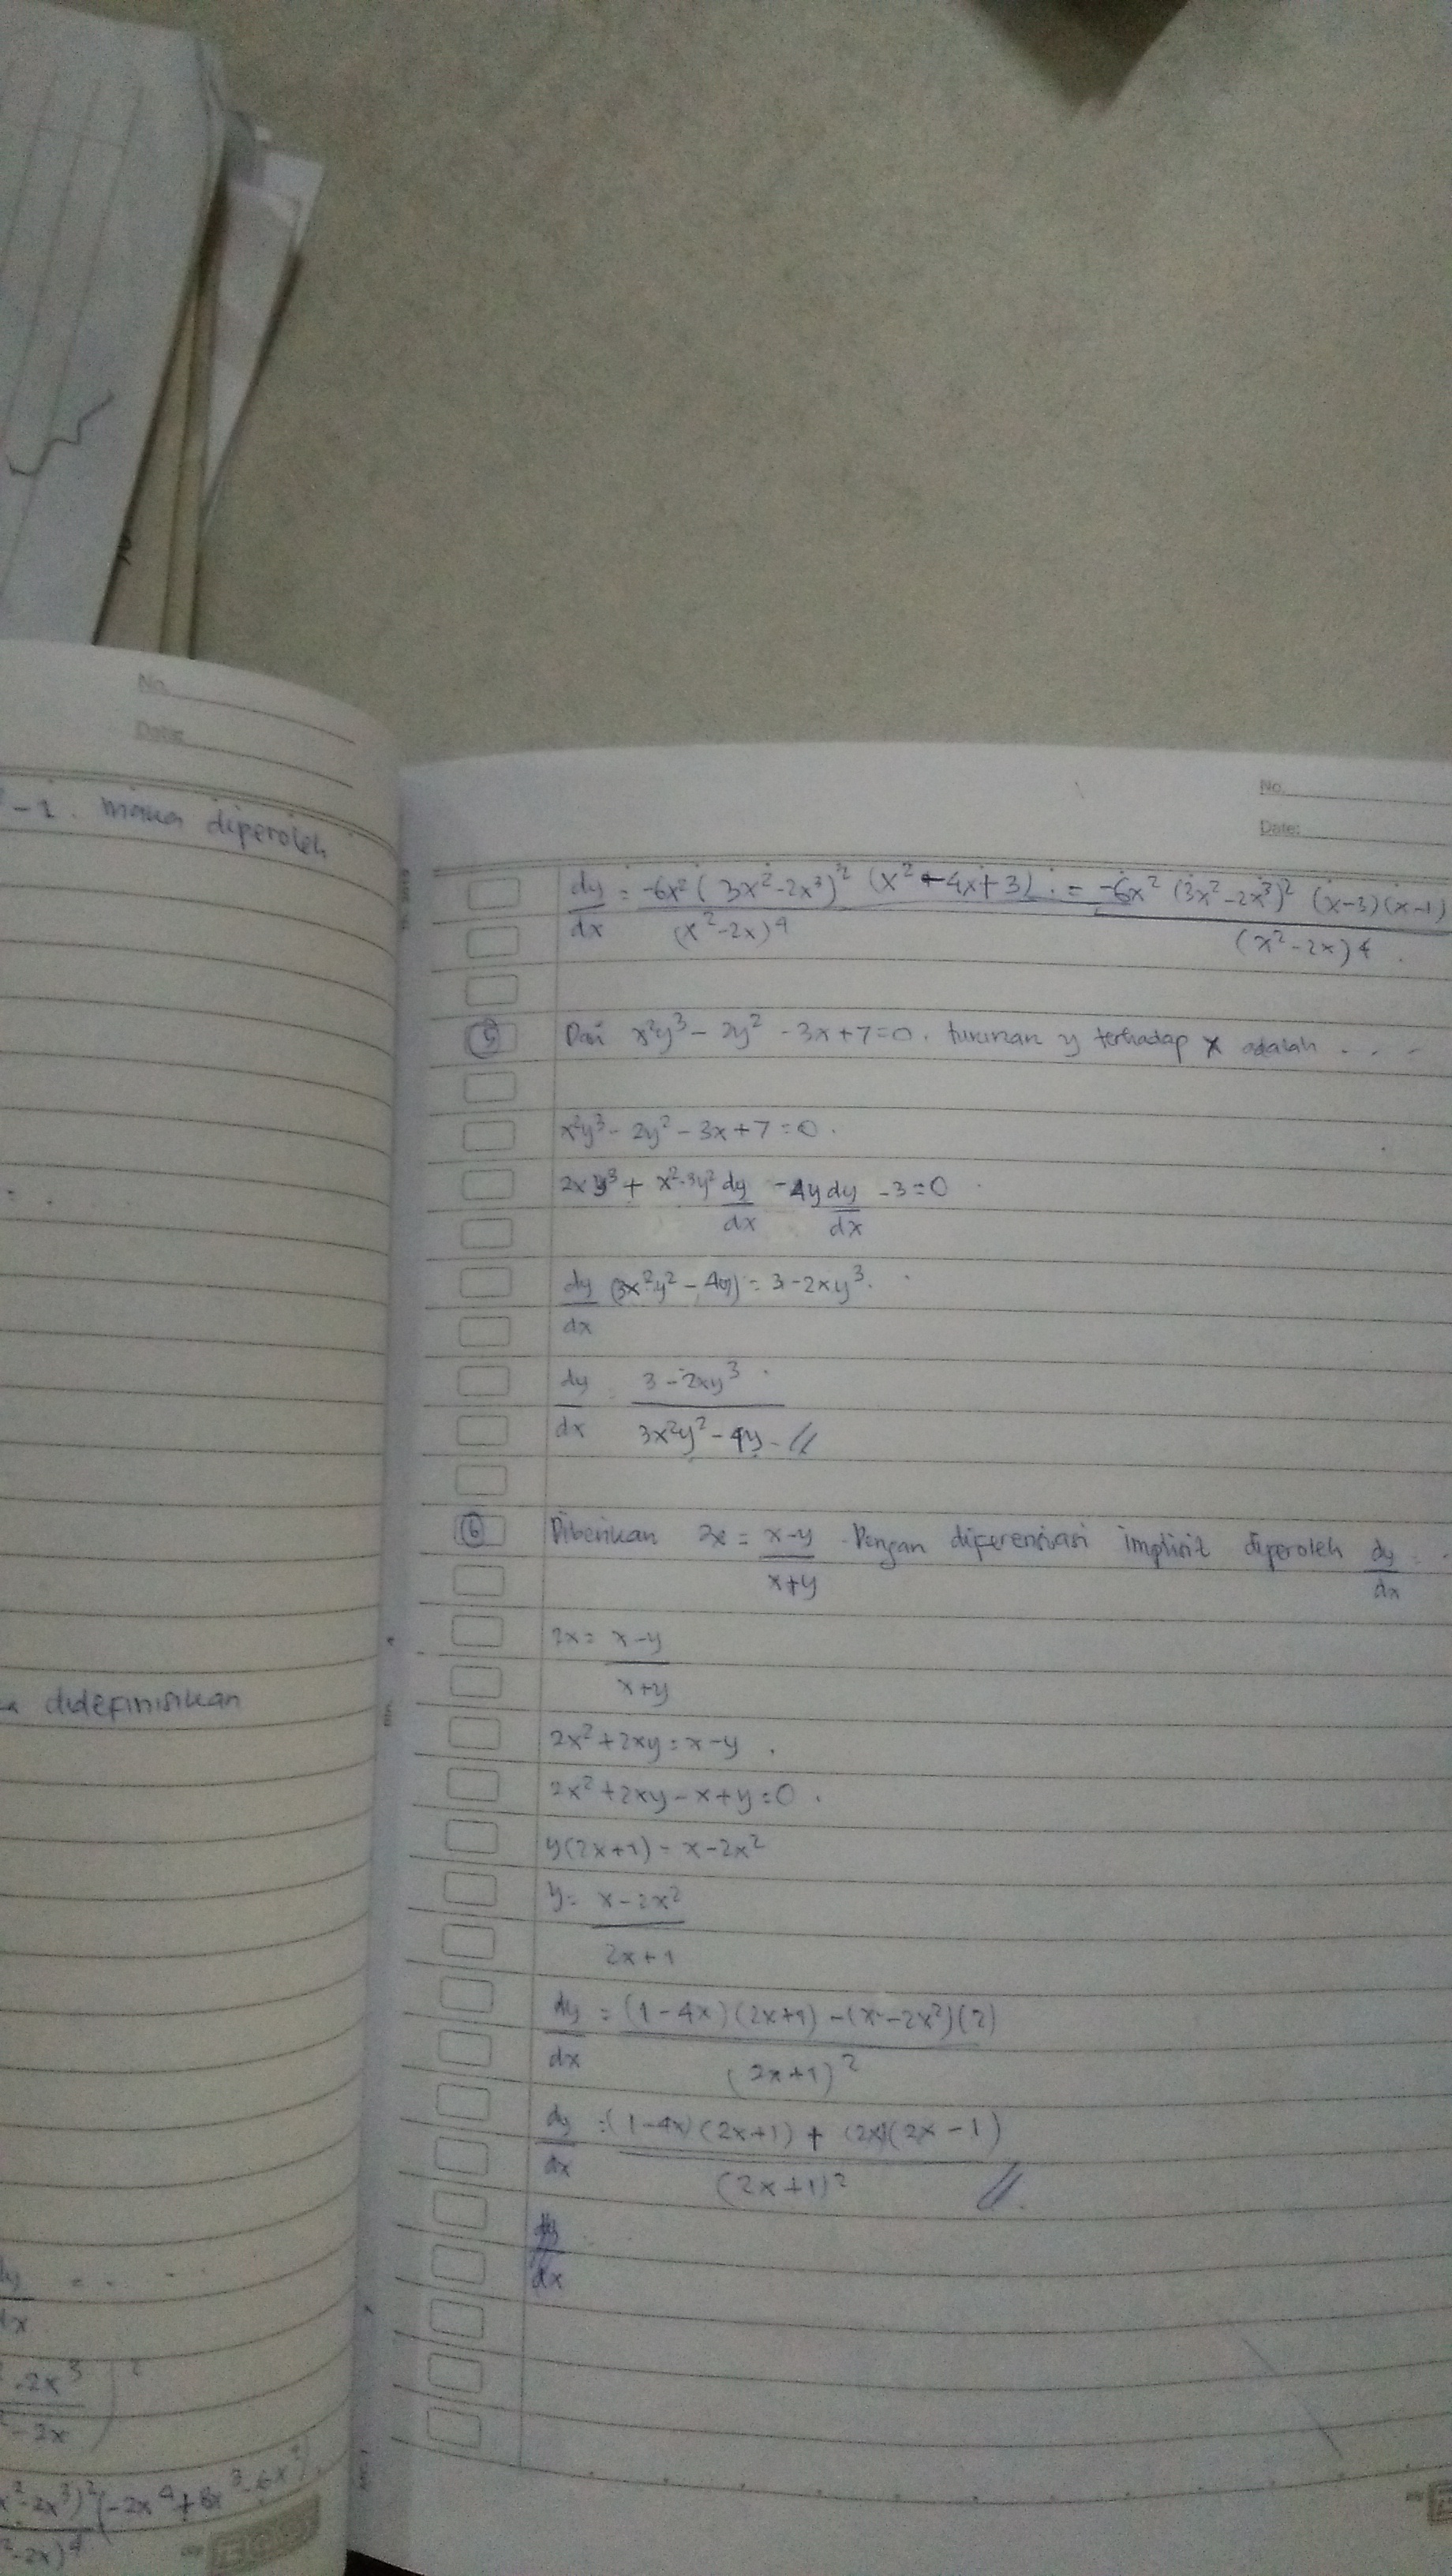 No.
Date:
-1. maka diperoleh
a didefinisikan
dy/dx = . . .
-2x³
-2x
x²-2x³)²(-2x⁴+8x³-6x²)
²-2x)⁴
No.
Date:
dy/dx = -6x²(3x²-2x³)²(x²-4x+3)/(x²-2x)⁴ = -6x²(3x²-2x³)²(x-3)(x-1)/(x²-2x)⁴
⑤ Dari x²y³ - 2y² - 3x+7=0. turunan y terhadap x adalah . . .
x²y³ - 2y² - 3x+7=0.
2xy³ + x²·3y² dy/dx - 4y dy/dx - 3=0
dy/dx (3x²y² - 4y) = 3-2xy³.
dy/dx = 3-2xy³/3x²y²-4y
⑥ Diberikan 2x = x-y/x+y. Dengan diferensiasi implisit diperoleh dy/dx = .
2x = x-y/x+y
2x²+2xy=x-y.
2x²+2xy-x+y=0.
y(2x+1) = x-2x²
y = x-2x²/2x+1
dy/dx = (1-4x)(2x+1)-(x-2x²)(2)/(2x+1)²
dy/dx = (1-4x)(2x+1)+(2x)(2x-1)/(2x+1)²
dy/dx